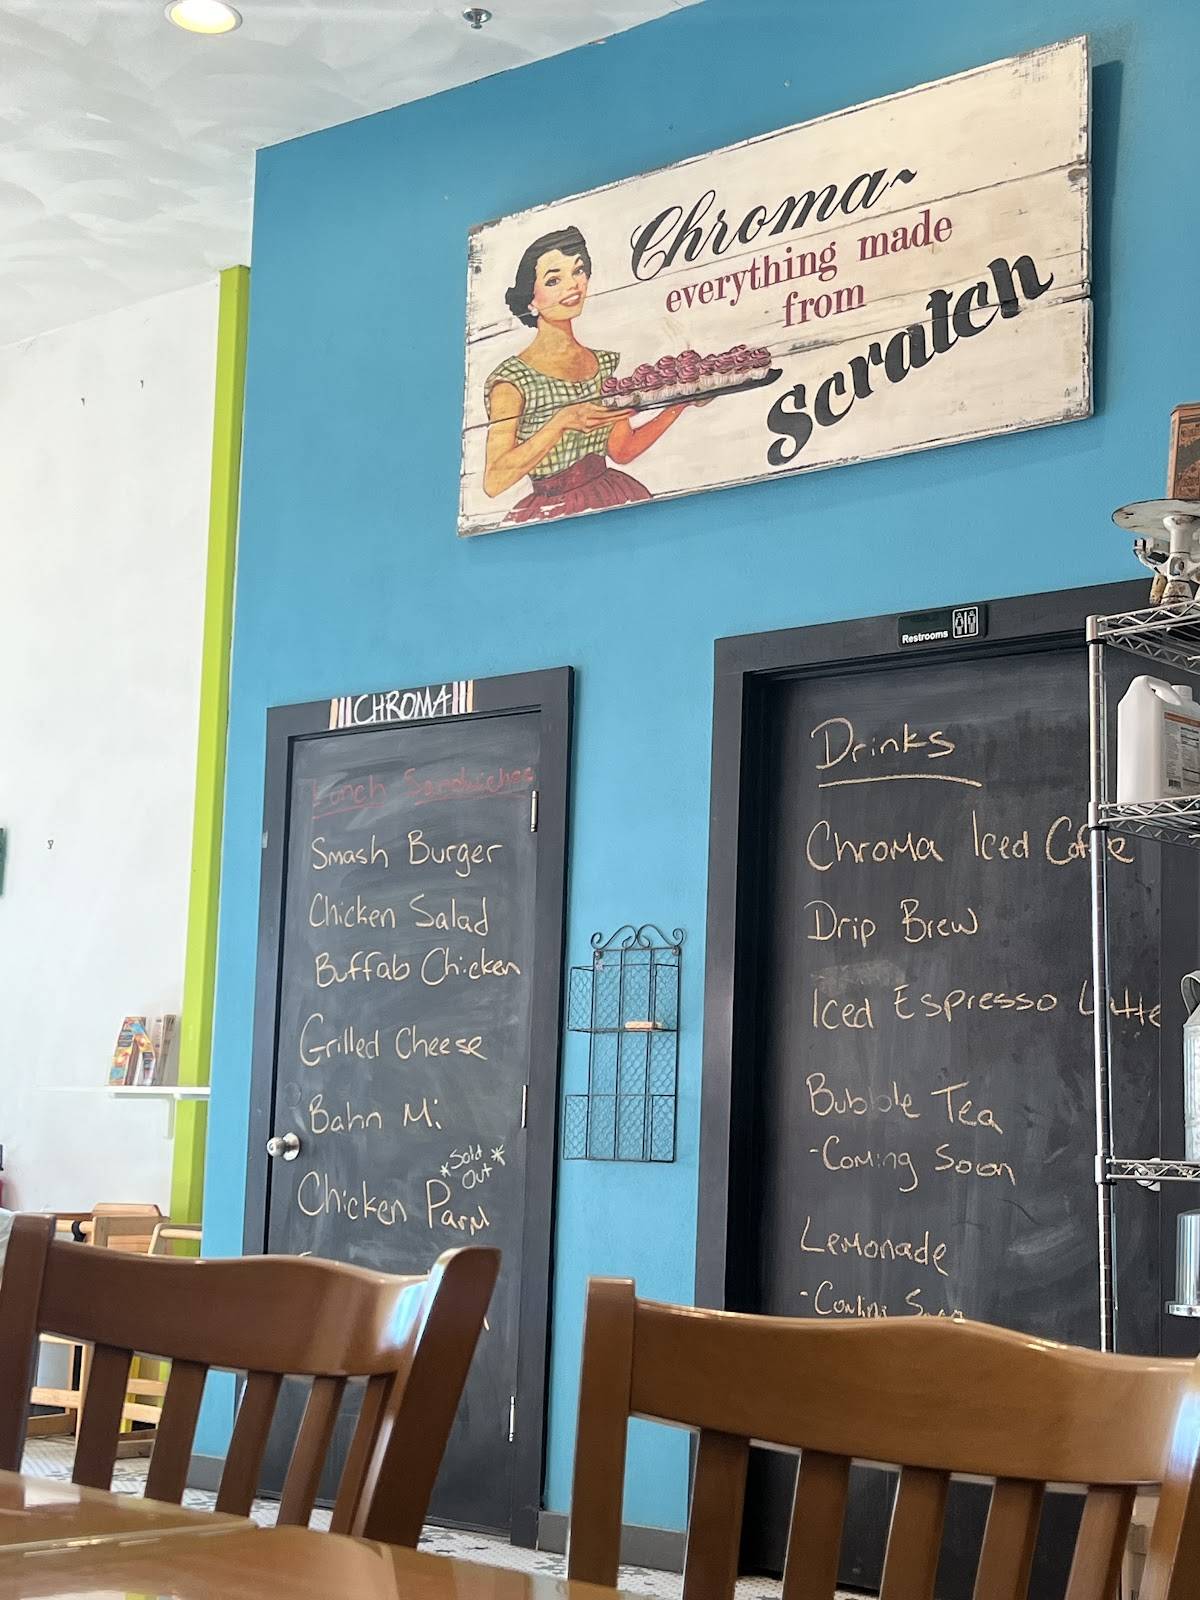 Chroma~
everything made
from
Scratch
Restrooms
CHROMA
Lunch Sandwiches
Smash Burger
Chicken Salad
Buffalo Chicken
Grilled Cheese
Bahn Mi
*Sold Out*
Chicken Parm
Drinks
Chroma Iced Coffee
Drip Brew
Iced Espresso Latte
Bubble Tea
-Coming Soon
Lemonade
-Coming Soon